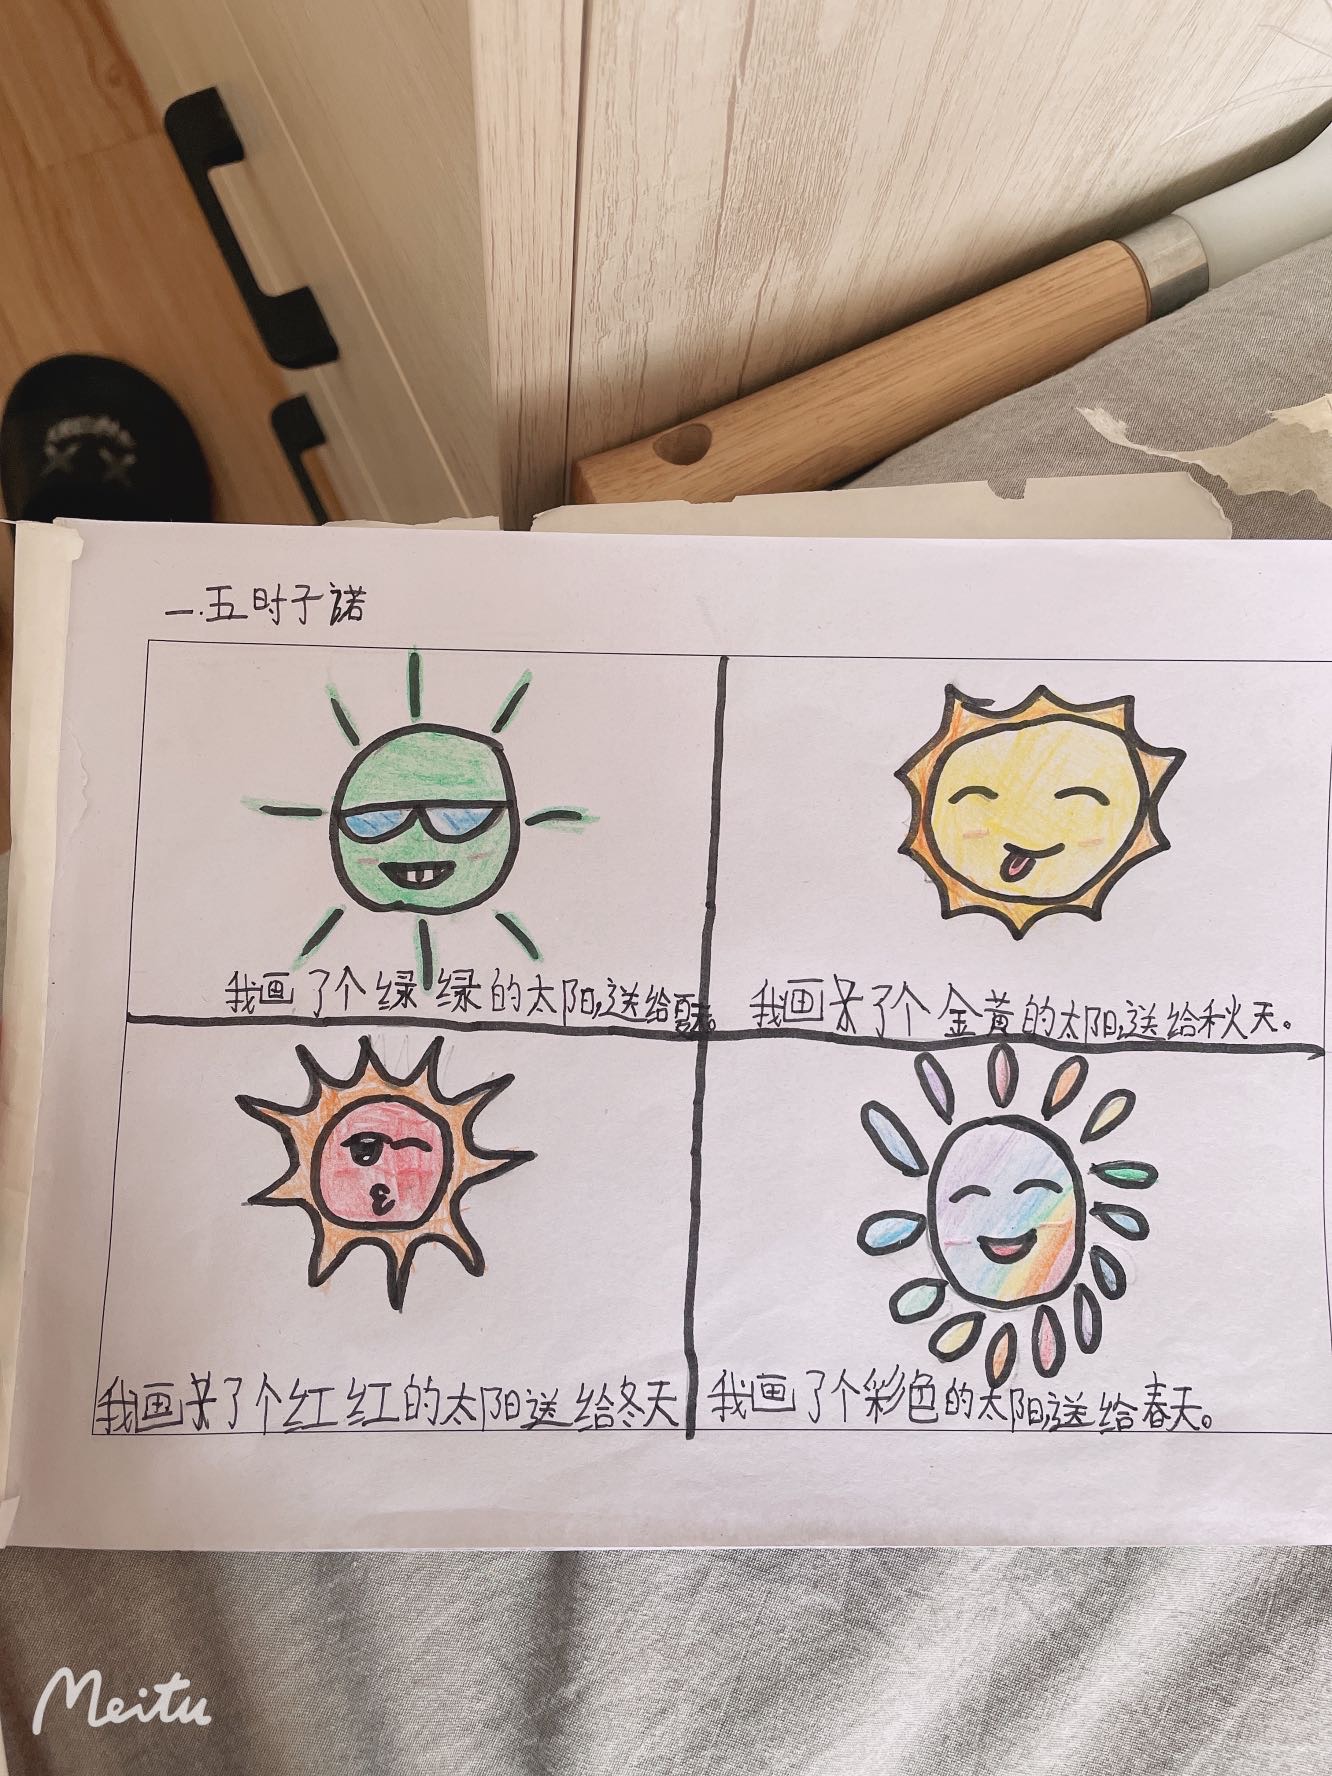 一.五时子諾
我画了个绿绿的太阳,送给夏天。
我画来了个金黄的太阳,送给秋天。
我画来了个红红的太阳送给冬天
我画了个彩色的太阳,送给春天。
Meitu